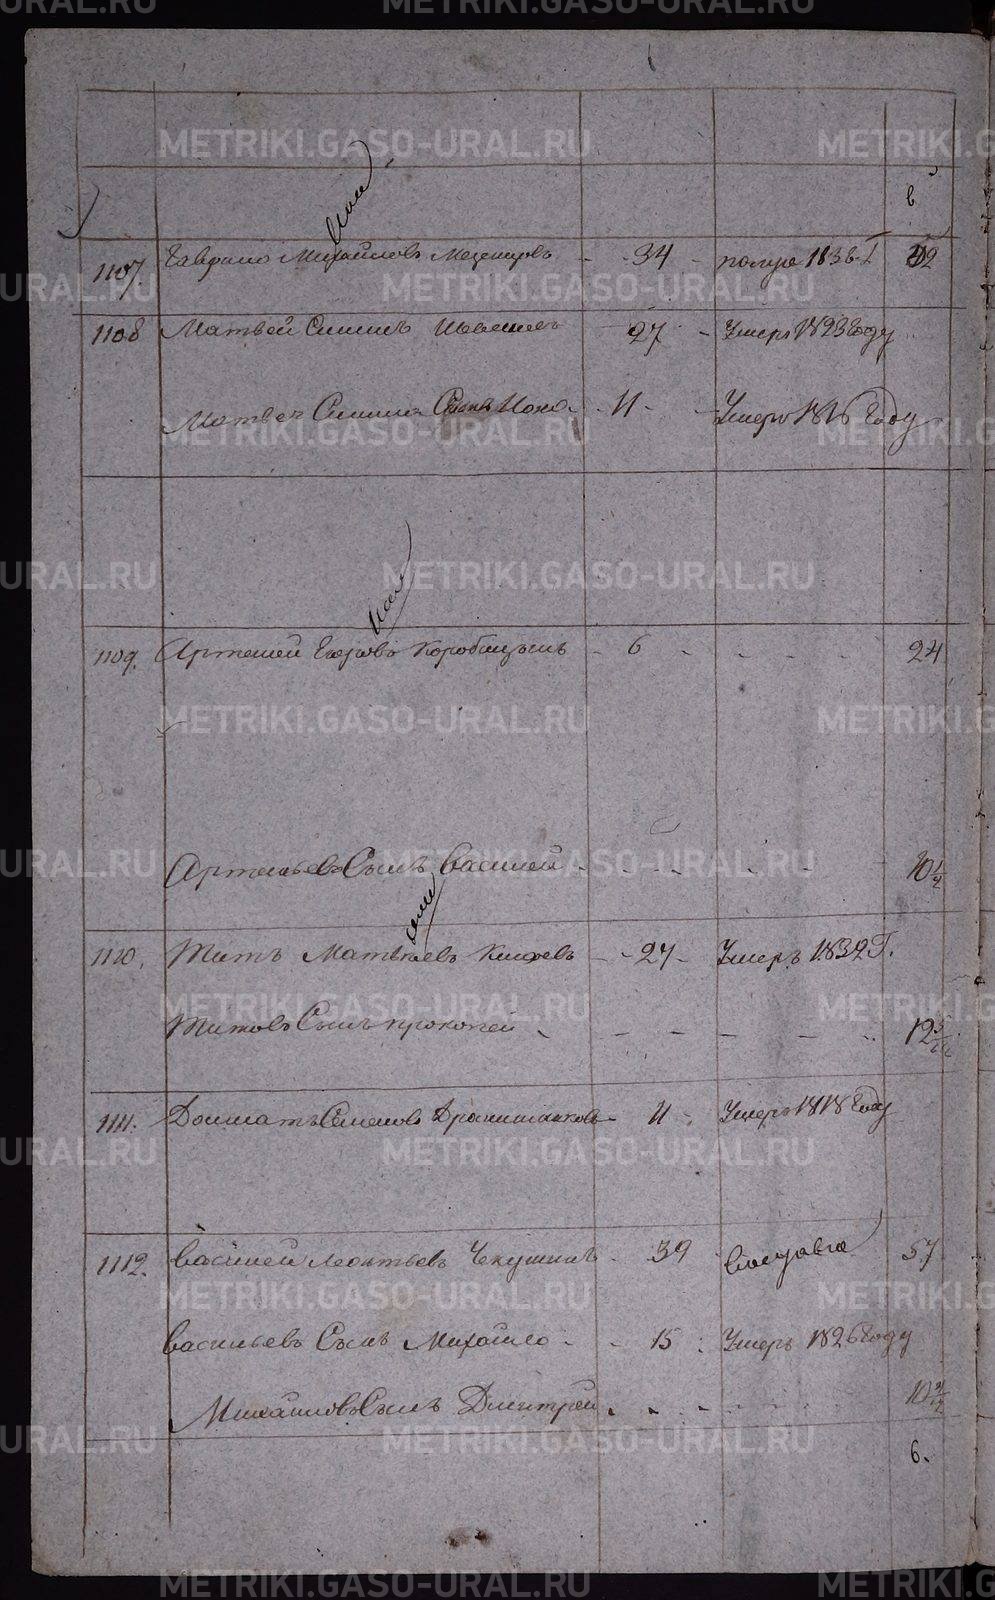 в
1107. Гаврило Михайловъ - 34 - 1836 Г 52
1108 Матвей Силинъ 27 - Умеръ 1823 году
Матвея Силина Сынъ - 11 - - Умеръ 1816 году
1109. Артемей Егоровъ Коробицынъ - 6 - - - - 24
Артемьевъ Сынъ Василей - - - - - 10 1/2
1110. Титъ Матвеевъ - - 27 - Умеръ 1832 Г.
Титовъ Сынъ Прокопей - - - - - 12
1111. Семеновъ - 11 - Умеръ 1818 году
1112. Василей Леонтьевъ Чекушинъ - 39 57
Васильевъ Сынъ Михайло - - 15 : Умеръ 1826 году
Михайловъ Сынъ Дмитрей - - - - - 10
6.
METRIKI.GASO-URAL.RU